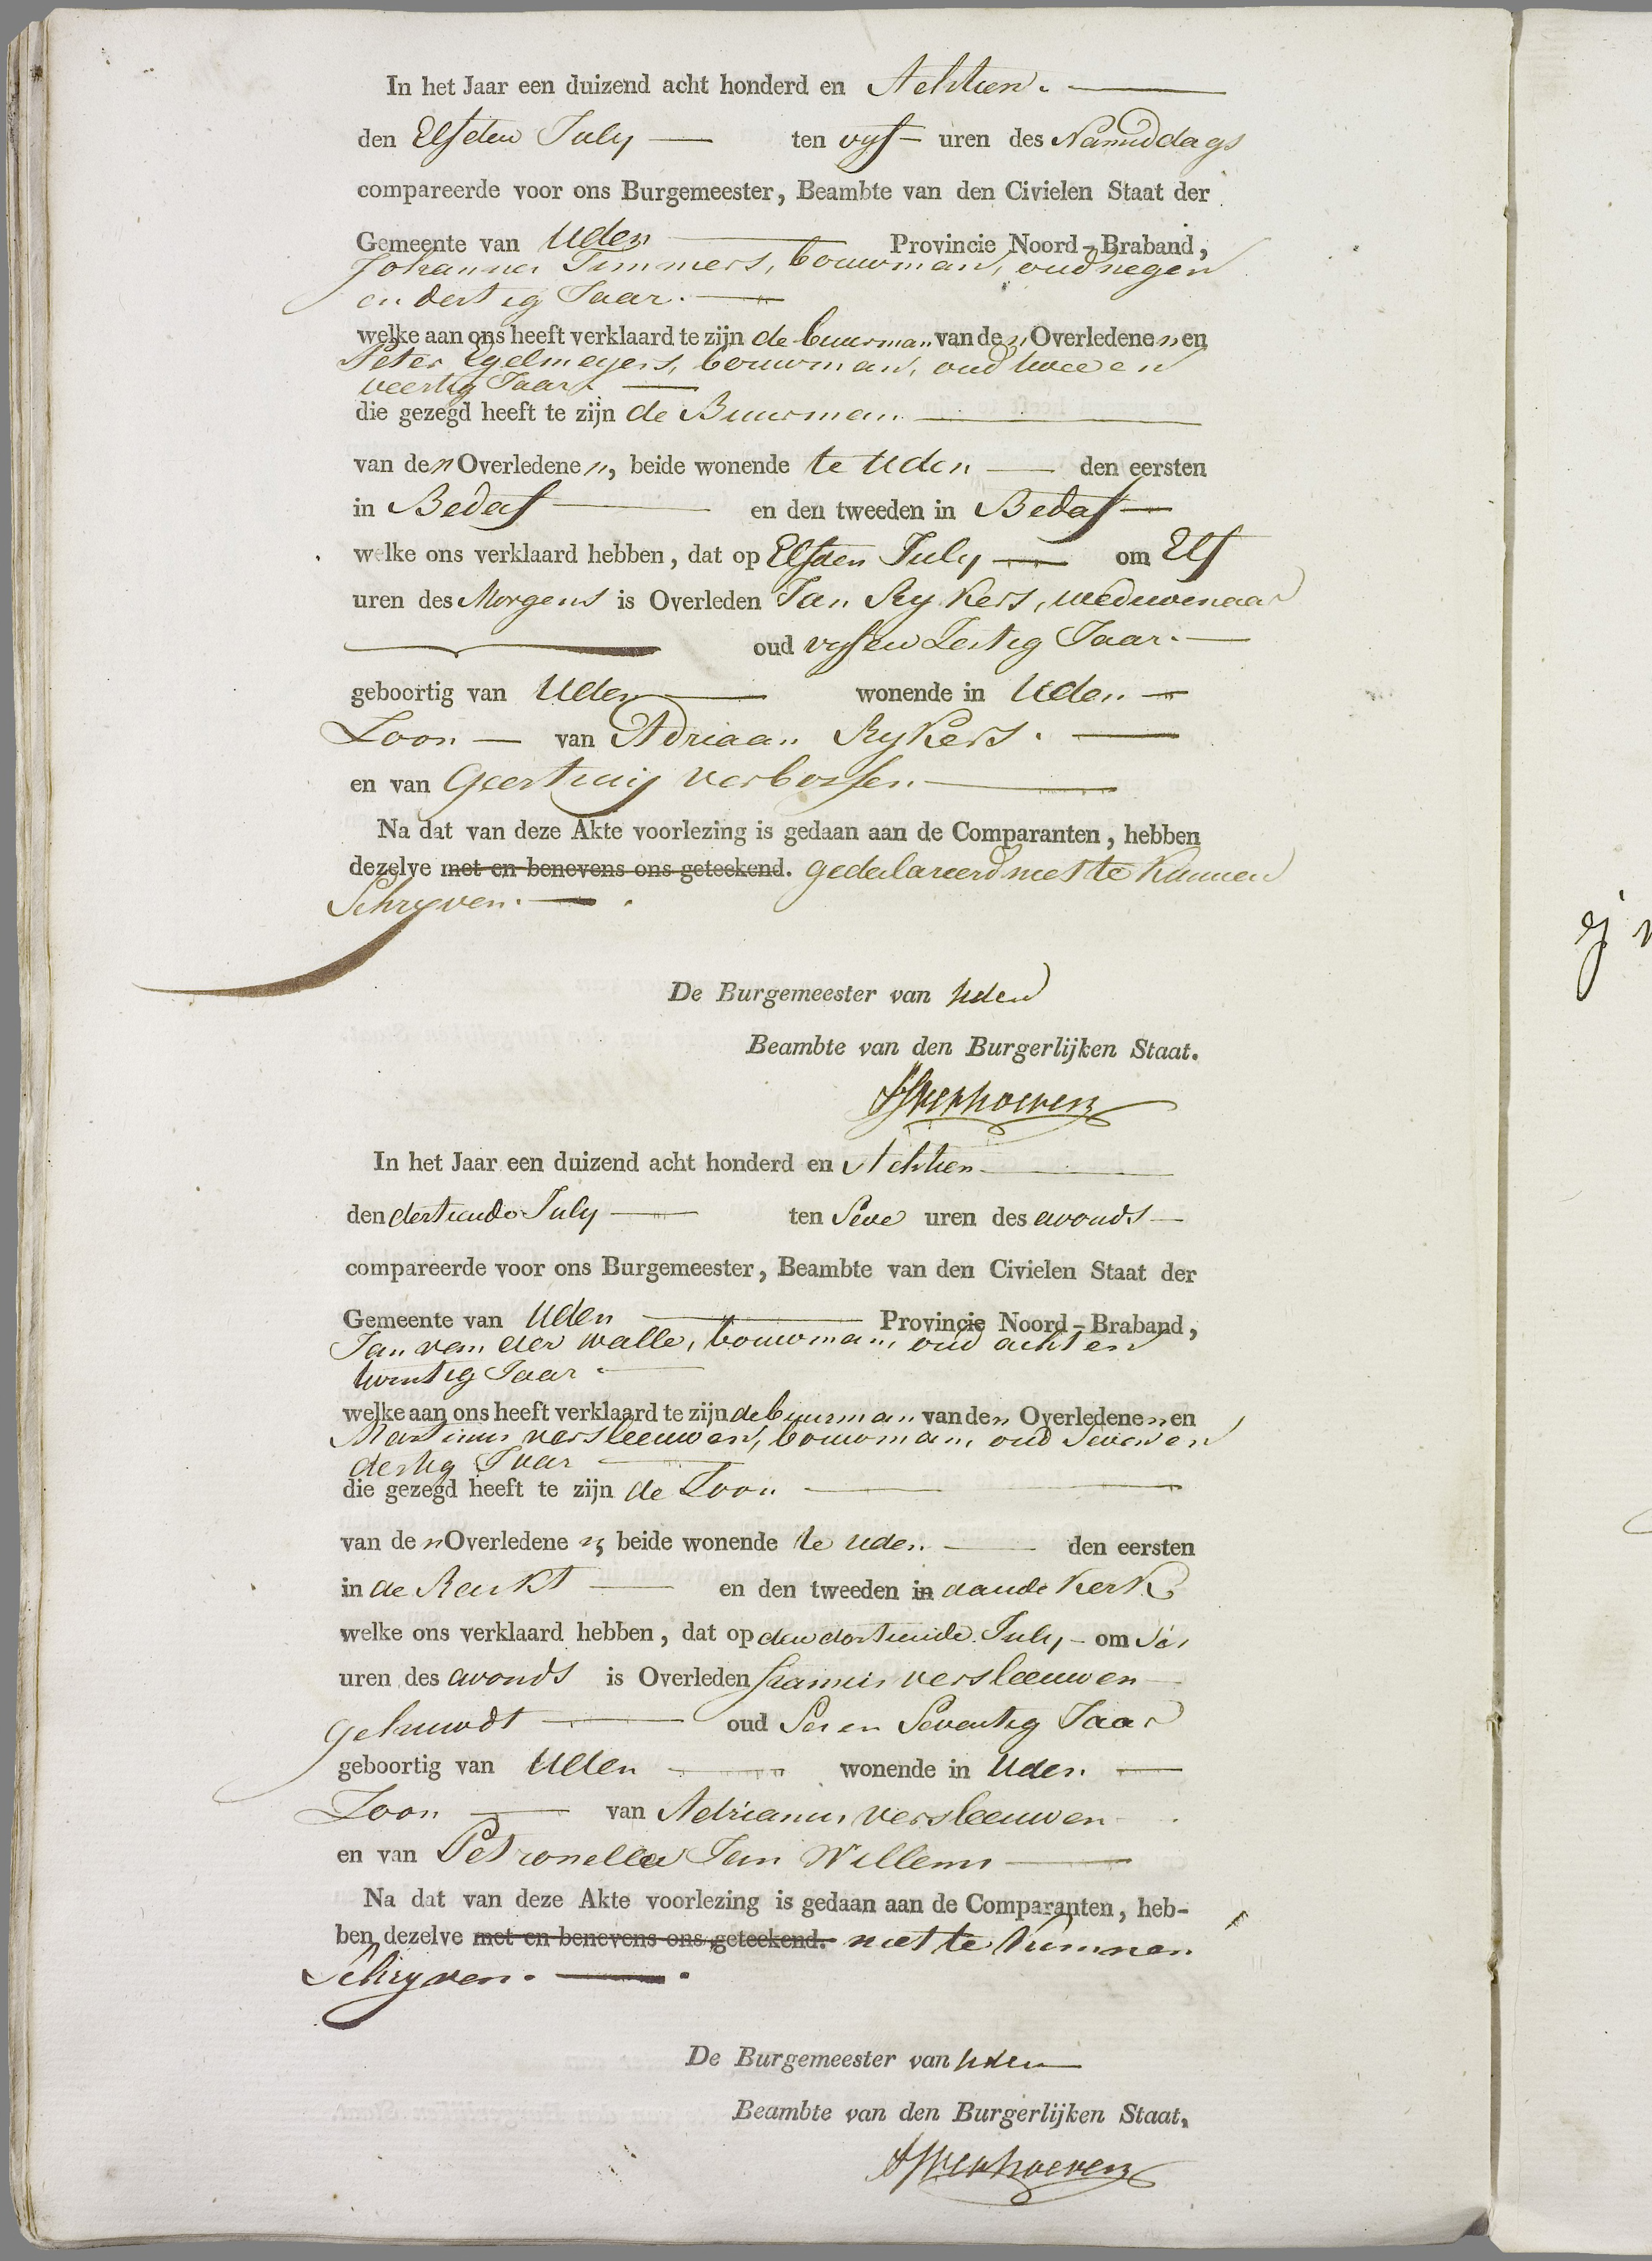 In het Jaar een duizend acht honderd en Achtien.
den Elfden July ten vyf uren des Namiddags
compareerde voor ons Burgemeester, Beambte van den Civielen Staat der
Gemeente van Uden Provincie Noord-Braband,
Johannes Timmers, bouwman, oud negen
en dertig Jaar.
welke aan ons heeft verklaard te zijn de buurman van den Overledenen en
Peter Egelmeyers, bouwman, oud twee en
veertig Jaar.
die gezegd heeft te zijn de Buurman
van den Overledenen, beide wonende te Uden den eersten
in Bedaf en den tweeden in Bedaf
welke ons verklaard hebben, dat op Elfden July om Elf
uren des Morgens is Overleden Jan Rykers, weduwenaar
oud vyf en Zestig Jaar.
geboortig van Uden wonende in Uden
Zoon van Adriaan Rykers.
en van Geertruij verbossen
Na dat van deze Akte voorlezing is gedaan aan de Comparanten, hebben
dezelve met en benevens ons geteekend. gedeclareerd niet te kunnen
Schryven.
De Burgemeester van Uden
Beambte van den Burgerlijken Staat.
Verhoeven
In het Jaar een duizend acht honderd en Achtien
den dertiende July ten Seve uren des avonds
compareerde voor ons Burgemeester, Beambte van den Civielen Staat der
Gemeente van Uden Provincie Noord-Braband,
Jan van der walle, bouwman, oud acht en
twintig Jaar
welke aan ons heeft verklaard te zijn de buurman van den Overledenen en
Martinus versleeuwen, bouwman, oud Seven en
dertig Jaar
die gezegd heeft te zijn de Zoon
van den Overledenen, beide wonende te Uden den eersten
in de en den tweeden in aan de Kerk
welke ons verklaard hebben, dat op den dertiende July om Ses
uren des avonds is Overleden francis versleeuwen
gehuwdt oud Ses en Seventig Jaar
geboortig van Uden wonende in Uden
Zoon van Adrianus versleeuwen
en van Petronella Jan Willems
Na dat van deze Akte voorlezing is gedaan aan de Comparanten, heb-
ben dezelve met en benevens ons geteekend. niet te kunnen
Schryven.
De Burgemeester van Uden
Beambte van den Burgerlijken Staat,
Verhoeven